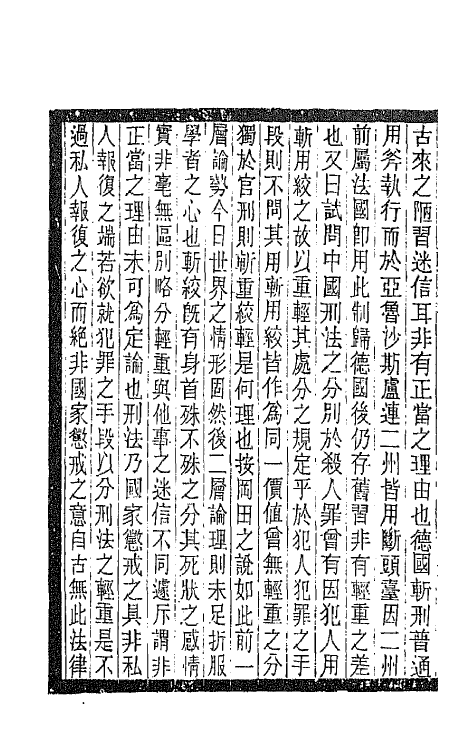 古來之陋習迷信耳非有正當之理由也德國斬刑普通
用斧執行而於亞魯沙斯盧連二州皆用斷頭臺因二州
前屬法國卽用此制歸德國後仍存舊習非有輕重之差
也又曰試問中國刑法之分別於殺人罪曾有因犯人用
斬用絞之故以重輕其處分之規定乎於犯人犯罪之手
段則不問其用斬用絞皆作爲同一價値曾無輕重之分
獨於官刑則斬重絞輕是何理也按岡田之說如此前一
層論勢今日世界之情形固然後二層論理則未足折服
學者之心也斬絞旣有身首殊不殊之分其死狀之感情
實非毫無區別略分輕重與他事之迷信不同遽斥謂非
正當之理由未可爲定論也刑法乃國家懲戒之具非私
人報復之端若欲就犯罪之手段以分刑法之輕重是不
過私人報復之心而絕非國家懲戒之意自古無此法律